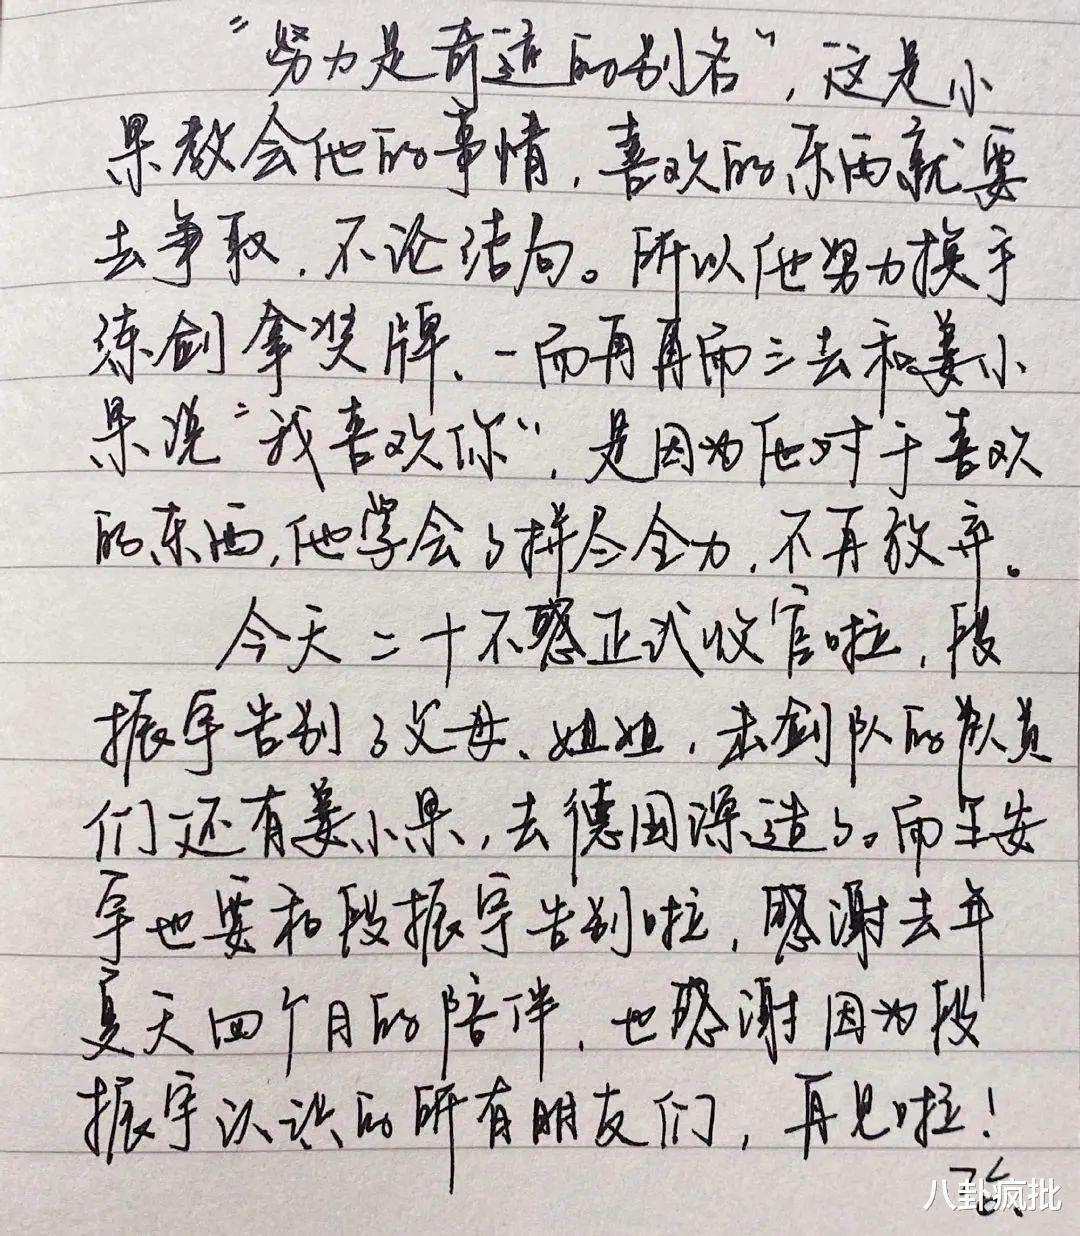 “努力是奇迹的别名”，这是小
果教会他的事情，喜欢的东西就要
去争取，不论结局。所以他努力换手
练剑拿奖牌、一而再再而三去和姜小
果说“我喜欢你”，是因为他对于喜欢
的东西，他学会了拼尽全力，不再放弃。
今天二十不惑正式收官啦，段
振宇告别了父母、姐姐，击剑队的队员
们还有姜小果，去德国深造了。而王安
宇也要和段振宇告别啦，感谢去年
夏天四个月的陪伴，也感谢因为段
振宇认识的所有朋友们，再见啦！
八卦疯批